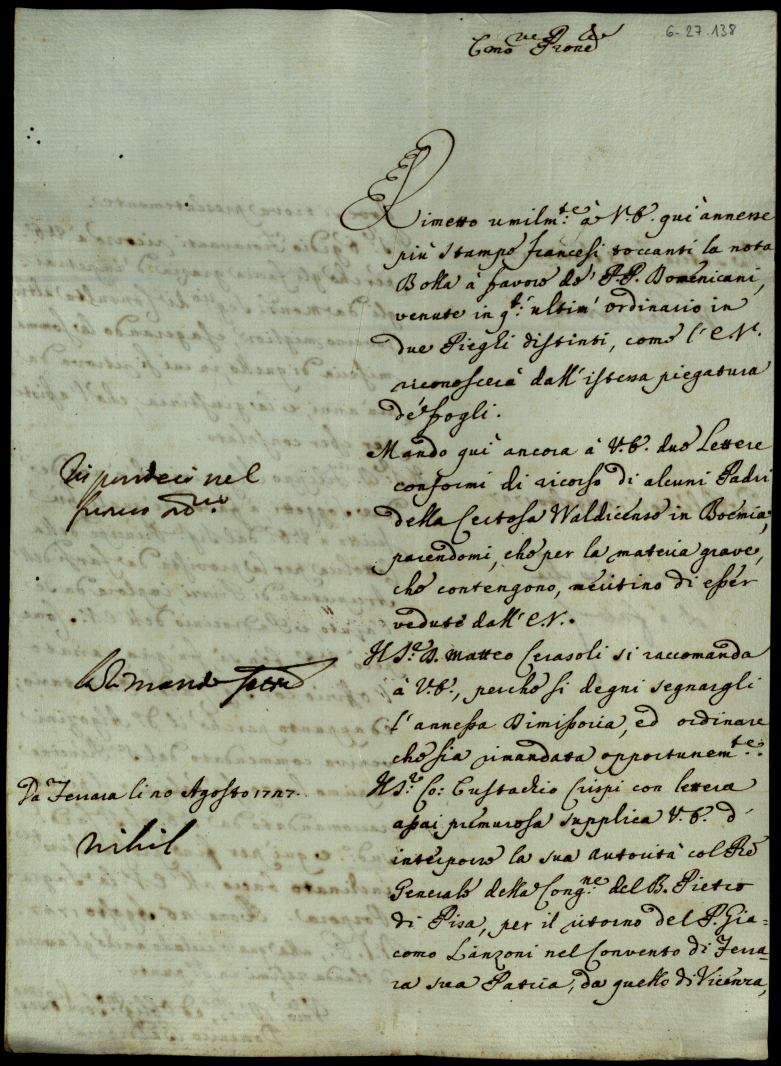 6-27.138
Emo ve P. Prone
Rimetto umilm.te à V.E. qui annesse
più stampe francesi toccanti la nota
Bolla à favore de' P.P. Domenicani,
venute in q.t: ultim' ordinario in
due Pieghi distinti, come l' E.V.
riconoscerà dall' istessa piegatura
de' fogli.
Mando qui ancora à V.E. due Lettere
conformi di ricorso di alcuni Padri
della Certosa Waldicense in Boemia,
parendomi, che per la materia grave,
che contengono, meritino di esser
vedute dall' E.V.
nel
Il S.r D. Matteo Cerasoli si raccomanda
à V.E., perche si degni segnargli
l' annessa Dimissoria, ed ordinare
che sia rimandata opportunem.te:
mand
Da Ferrara li 20 Agosto 1727.
Il S.r Co: Eustachio Crispi con lettera
assai premurosa supplica V.E. d'
interporre la sua autorità col P're
Generale della Cong.ne del B. Pietro
di Pisa, per il ritorno del P. Gia=
como Lanzoni nel Convento di Ferra=
ra sua Patria, da quello di Vicenza,
nihil